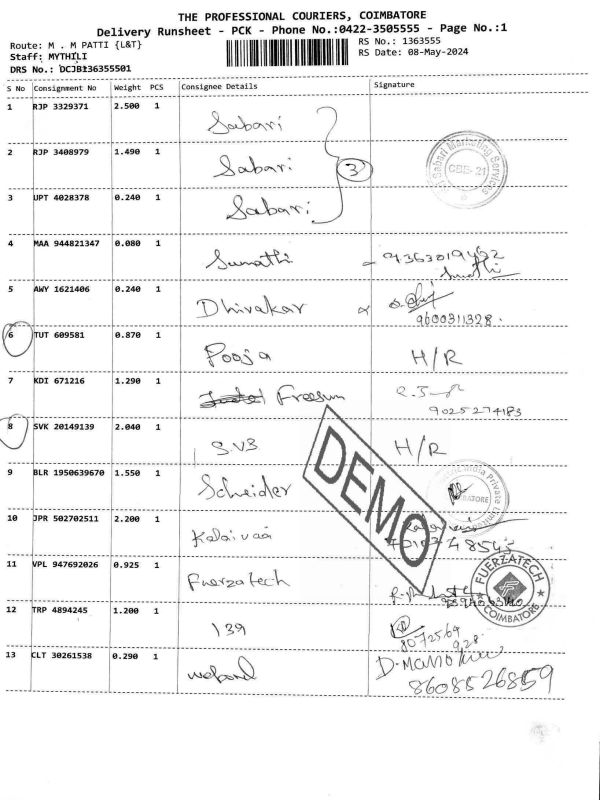 THE PROFESSIONAL COURIERS, COIMBATORE
Delivery Runsheet - PCK - Phone No.:0422-3505555 - Page No.:1
Route: M . M PATTI {L&T}
RS No.: 1363555
Staff: MYTHILI
RS Date: 08-May-2024
DRS No.: DCJB136355501
S No Consignment No Weight PCS Consignee Details Signature
1 RJP 3329371 2.500 1 Sabari
2 RJP 3408979 1.490 1 Sabari 3
3 UPT 4028378 0.240 1 Sabari
Sabari Marketing Services
CBE-21
4 MAA 944821347 0.080 1 Sumathi
5 AWY 1621406 0.240 1 Dhivakar
9600311328.
6 TUT 609581 0.870 1 Pooja H/R
7 KDI 671216 1.290 1 Freesun
9025274183
8 SVK 20149139 2.040 1 SVB H/R
DEMO
9 BLR 1950639670 1.550 1 Scheider
India Private
10 JPR 502702511 2.200 1 Kalaivaa
11 VPL 947692026 0.925 1 Fuerzatech
FUERZATECH
COIMBATORE
12 TRP 4894245 1.200 1 139
8072569
928
13 CLT 30261538 0.290 1
8608526859